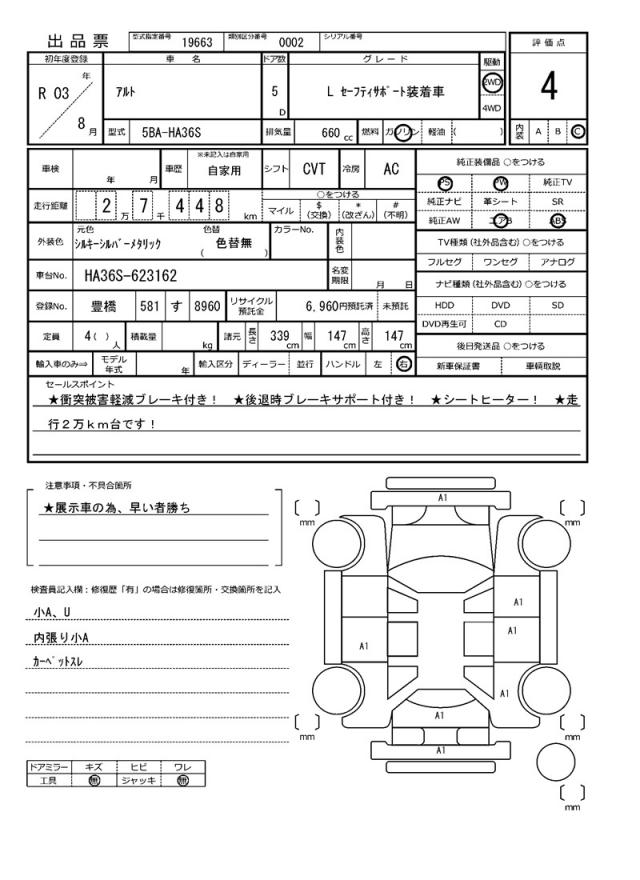 出品票 型式指定番号 19663 類別区分番号 0002 シリアル番号
初年度登録 車名 ドア数 グレード 駆動 評価点
R 03 年 8 月 ｱﾙﾄ 5 D L ｾｰﾌﾃｨｻﾎﾟｰﾄ装着車 2WD 4WD 4
型式 5BA-HA36S 排気量 660 cc 燃料 ガソリン 軽油 ( ) 内装 A B C
車検 年 月 車歴 ※未記入は自家用 自家用 シフト CVT 冷房 AC
走行距離 2 万 7 千 4 4 8 km ○をつける マイル $ (交換) * (改ざん) # (不明)
外装色 元色 ｼﾙｷｰｼﾙﾊﾞｰﾒﾀﾘｯｸ 色替 色替無 ( ) カラーNo. 内装色
車台No. HA36S-623162 名変期限 月 日
登録No. 豊橋 581 す 8960 リサイクル預託金 6,960円預託済 未預託
定員 4 ( ) 人 積載量 kg 諸元 長さ 339 cm 幅 147 cm 高さ 147 cm
輸入車のみ⇒ モデル年式 年 輸入区分 ディーラー 並行 ハンドル 左 右
純正装備品 ○をつける
PS PW 純正TV
純正ナビ 革シート SR
純正AW エアB ABS
TV種類 (社外品含む) ○をつける
フルセグ ワンセグ アナログ
ナビ種類 (社外品含む) ○をつける
HDD DVD SD
DVD再生可 CD
後日発送品 ○をつける
新車保証書 車輌取説
セールスポイント
★衝突被害軽減ブレーキ付き！ ★後退時ブレーキサポート付き！ ★シートヒーター！ ★走
行２万ｋｍ台です！
注意事項・不具合箇所
★展示車の為、早い者勝ち
検査員記入欄：修復歴「有」の場合は修復箇所・交換箇所を記入
小A、U
内張り小A
ｶｰﾍﾟｯﾄｽﾚ
ドアミラー キズ ヒビ ワレ
工具 無 ジャッキ 無
A1
[ ] mm [ ] mm
A1
A1
A1
A1
A1
[ ] mm [ ] mm
A1
[ ] mm